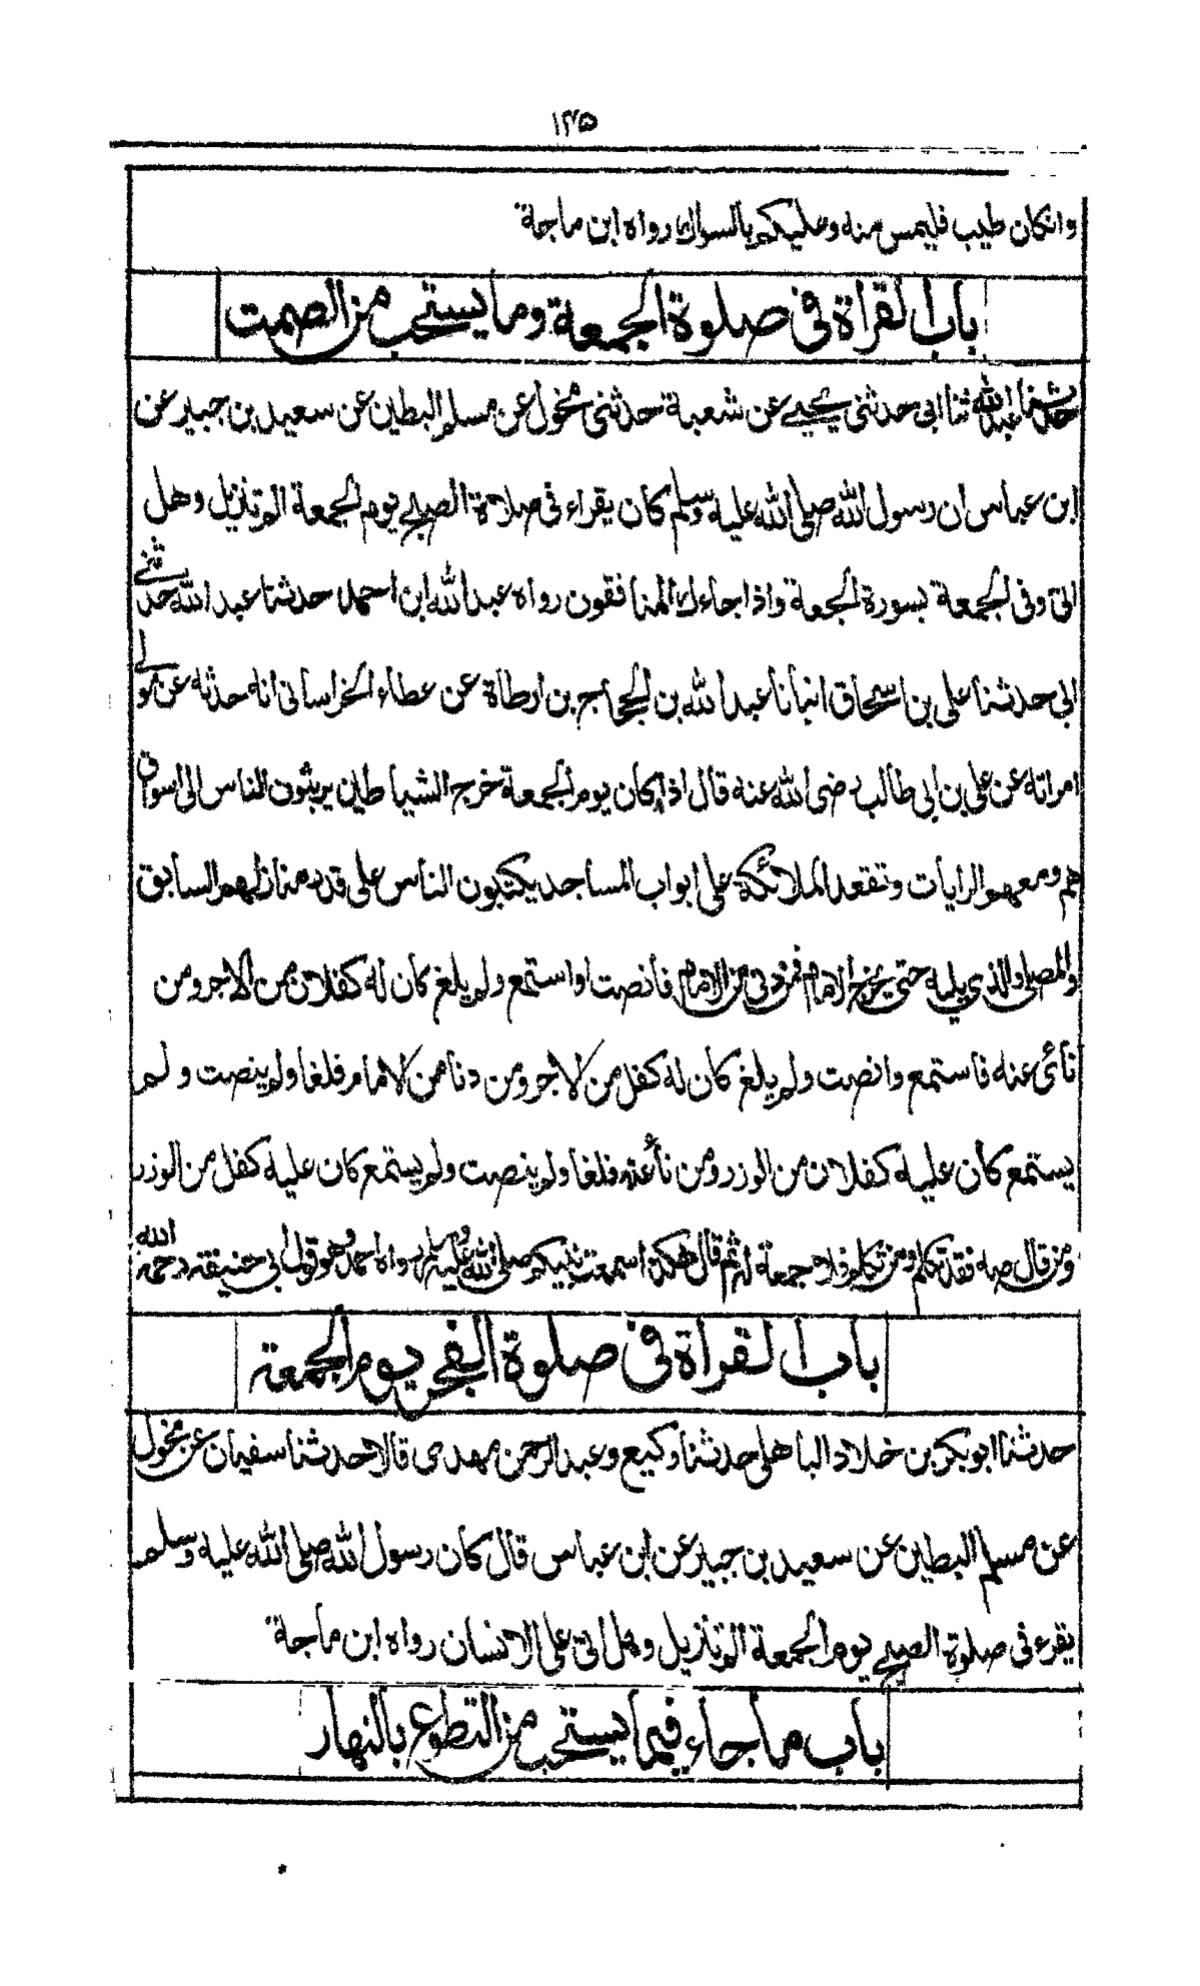 ١٣٥
وانكان طيب فليمس منه وعليكم بالسواك رواه ابن ماجة
باب القراة فى صلوة الجمعة وما يستحب من الصمت
حدثنا عبد الله ثنا ابى حدثنى يحيى عن شعبة حدثنى مخول عن مسلم البطين عن سعيد بن جبير عن
ابن عباس ان رسول الله صلى الله عليه وسلم كان يقراء فى صلاة الصبح يوم الجمعة الم تنزيل وهل
اتى وفى الجمعة بسورة الجمعة واذا جاءك المنافقون رواه عبد الله ابن احمد حدثنا عبد الله حدثنى
ابى حدثنا على بن اسحاق انبأنا عبد الله بن الحجاج بن ارطاة عن عطاء الخراسانى انه حدثه عن مولى
امراته عن على بن ابى طالب رضى الله عنه قال اذا كان يوم الجمعة خرج الشياطين يربثون الناس الى اسواق
هم ومعهم الرايات وتقعد الملائكة على ابواب المساجد يكتبون الناس على قدر منازلهم السابق
والمصلى والذى يليه حتى يخرج الامام فمن دنى من الامام فانصت او استمع ولم يلغ كان له كفلان من الاجر ومن
نأى عنه فاستمع وانصت ولم يلغ كان له كفل من الاجر ومن دنا من الامام فلغا ولم ينصت ولم
يستمع كان عليه كفلان من الوزر ومن نأ عنه فلغا ولم ينصت ولم يستمع كان عليه كفل من الوزر
ومن قال صه فقد تكلم ومن تكلم فلا جمعة له ثم قال هكذا سمعت نبيكم صلى الله عليه وسلم رواه احمد وهو قول ابى حنيفة رحمه الله
باب القراة فى صلوة الفجر يوم الجمعة
حدثنا ابو بكر بن خلاد الباهلى حدثنا وكيع وعبد الرحمن مهدى قالا حدثنا سفيان عن مخول
عن مسلم البطين عن سعيد بن جبير عن ابن عباس قال كان رسول الله صلى الله عليه وسلم
يقرء فى صلوة الصبح يوم الجمعة الم تنزيل وهل اتى على الانسان رواه ابن ماجة
باب ما جاء فيما يستحب من التطوع بالنهار